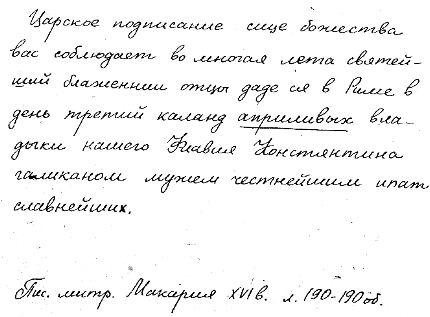 Царское подписание сице божества
вас соблюдает во многая лета святей-
ший блаженнии отцы даде ся в Риме в
день третий каланд априливых вла-
дыки нашего Флавия Констянтина
галиканом мужем честнейшим ипат
славнейших.
Пис. митр. Макария XVI в. л. 190-190 об.